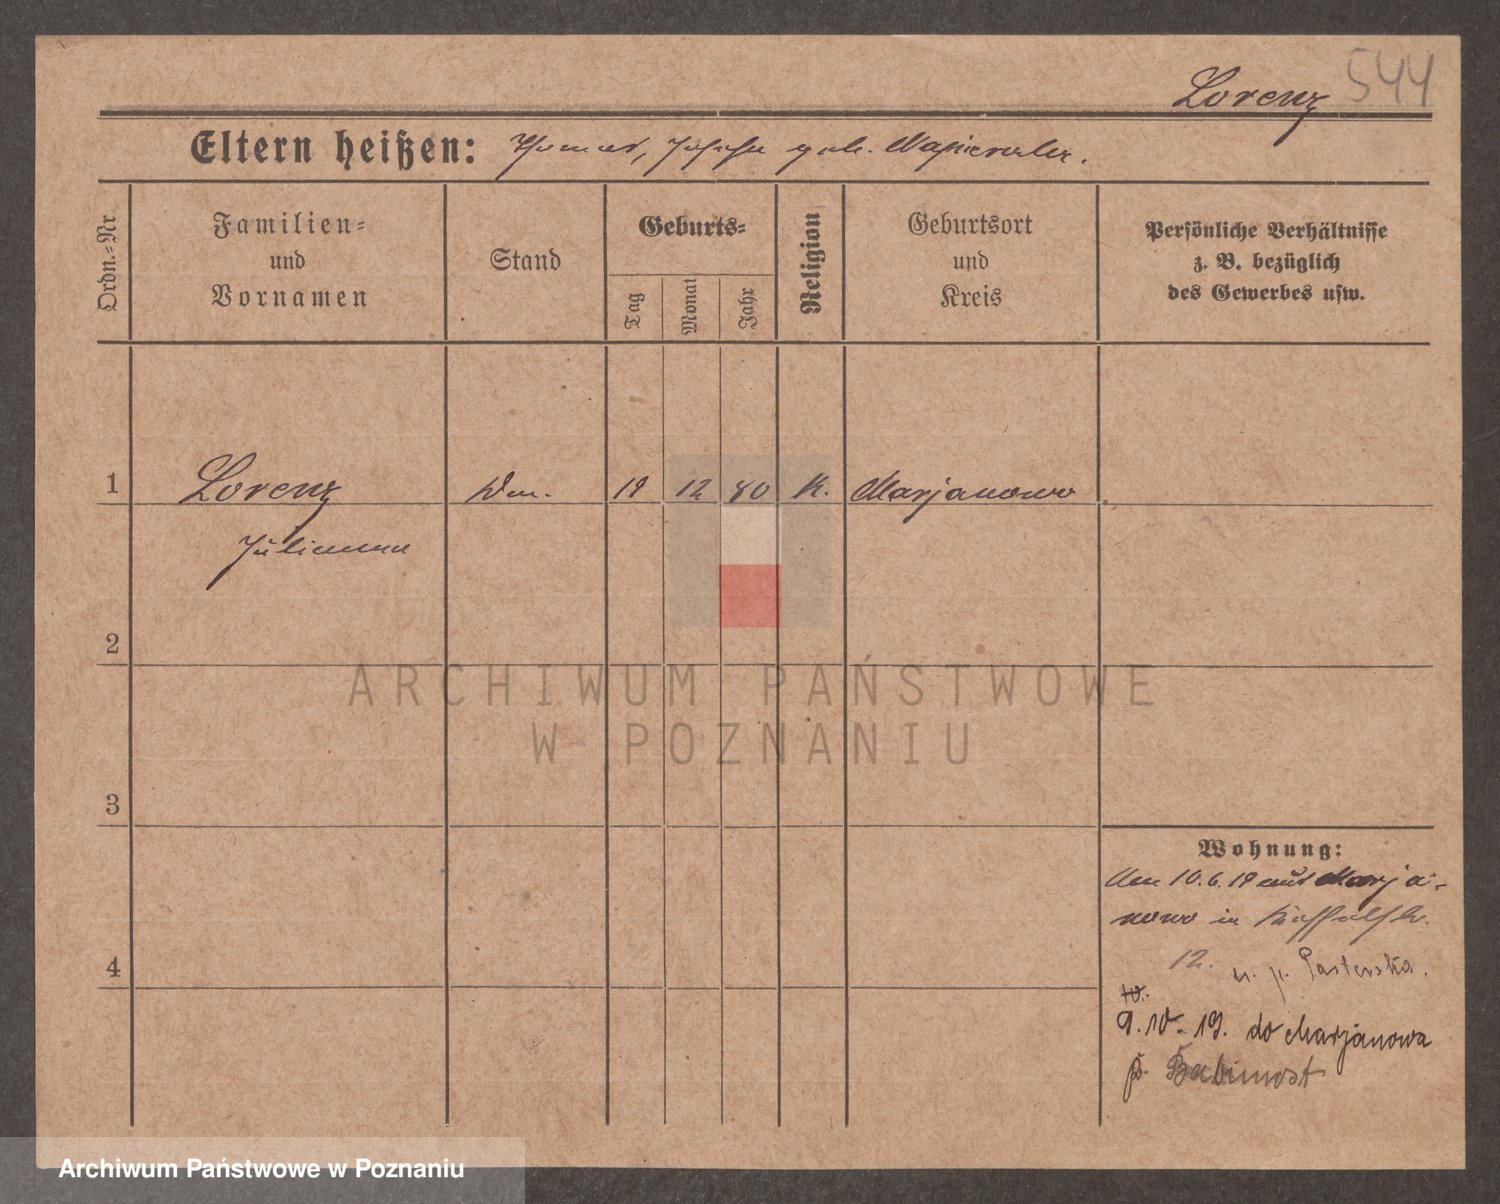 Lorenz 544
Eltern heißen: Thomas, Josefa geb. Napierala.
Ordn.=Nr
Familien=
und
Vornamen
Stand
Geburts=
Tag
Monat
Jahr
Religion
Geburtsort
und
Kreis
Persönliche Verhältnisse
z. B. bezüglich
des Gewerbes usw.
1 Lorenz 19 12 80 K. Marjanowo
Julianna
2
ARCHIWUM PAŃSTWOWE
W POZNANIU
3
Wohnung:
Am 10.6.19 aus Marja-
nowo in
12. u. p. Pasterska.
9.10.19. do Marjanowa
p. Babimost
4
Archiwum Państwowe w Poznaniu